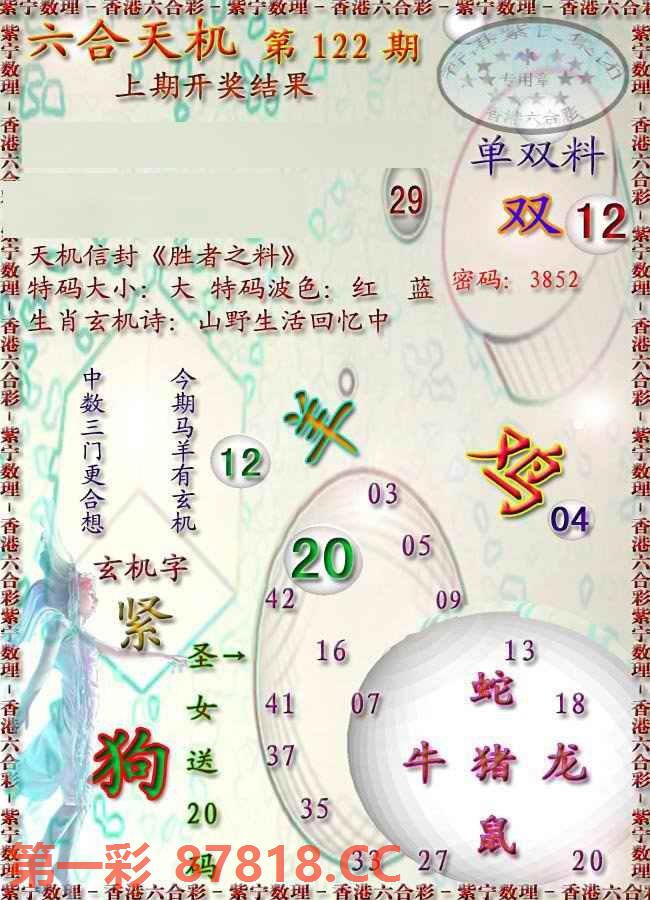 紫宁数理-香港六合彩-紫宁数理-香港六合彩-紫宁数理-香港六合彩
六合天机 第 122 期
上期开奖结果
专用章
香港六合彩
单双料
29
双 12
天机信封《胜者之料》
特码大小：大 特码波色：红 蓝
密码：3852
生肖玄机诗：山野生活回忆中
今期马羊有玄机
中数三门更合想
12
羊
鸡
04
03
20
05
玄机字
42
09
紧
圣→
女
送
20
码
16
13
蛇
41
07
18
狗
37
牛 猪 龙
35
鼠
33
27
20
第一彩 87818.CC
紫宁数理-香港六合彩-紫宁数理-香港六合彩-紫宁数理-香港六合彩